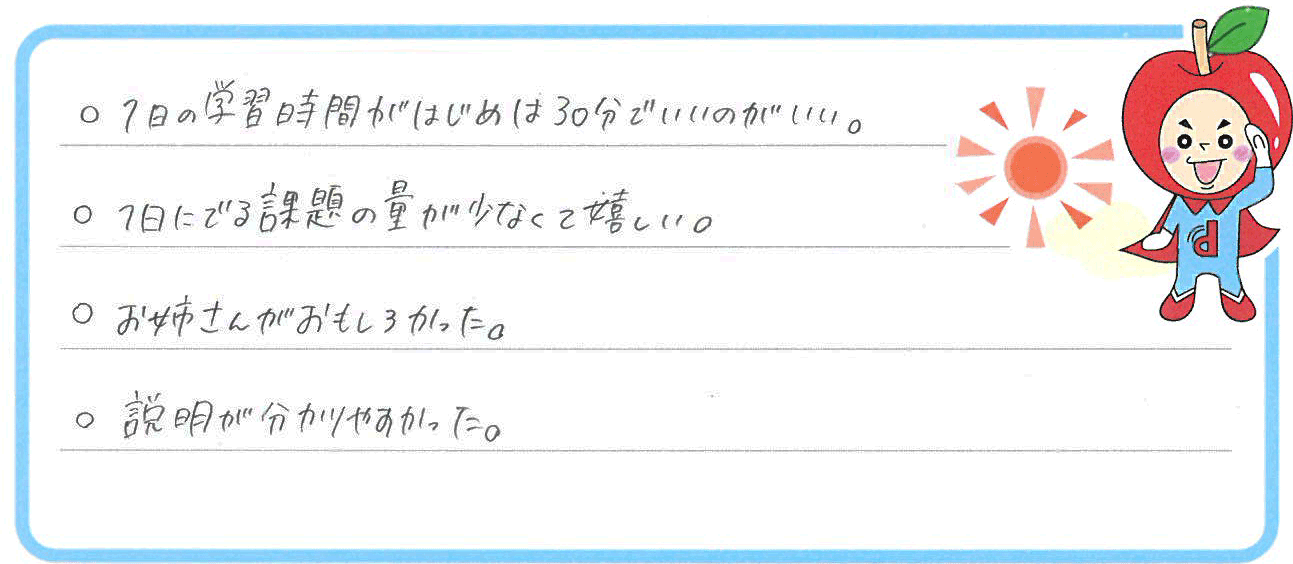 ○ 1日の学習時間がはじめは30分でいいのがいい。
○ 1日にでる課題の量が少なくて嬉しい。
○ お姉さんがおもしろかった。
○ 説明が分かりやすかった。
d